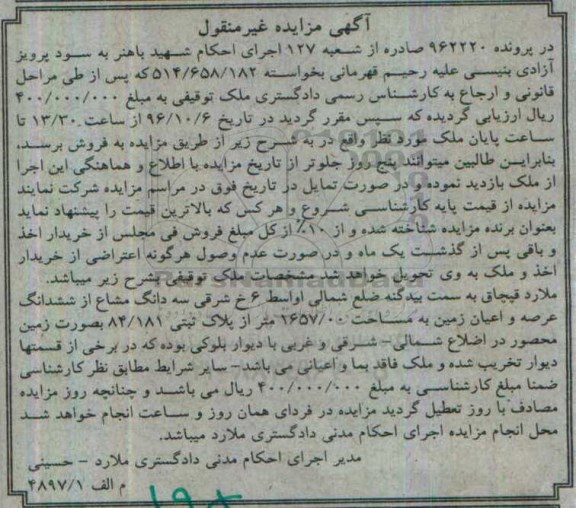 آگهی مزایده غیرمنقول
در پرونده ۹۶۲۲۲۰ صادره از شعبه ۱۲۷ اجرای احکام شهید باهنر به سود پرویز
آزادی بنیسی علیه رحیم قهرمانی بخواسته ۵۱۴/۶۵۸/۱۸۲ که پس از طی مراحل
قانونی و ارجاع به کارشناس رسمی دادگستری ملک توقیفی به مبلغ ۴۰۰/۰۰۰/۰۰۰
ریال ارزیابی گردیده که سپس مقرر گردید در تاریخ ۹۶/۱۰/۶ از ساعت ۱۳/۳۰ تا
ساعت پایان ملک مورد نظر واقع در به شرح زیر از طریق مزایده به فروش برسد.
بنابراین طالبین میتوانند پنج روز جلوتر از تاریخ مزایده با اطلاع و هماهنگی این اجرا
از ملک بازدید نموده و در صورت تمایل در تاریخ فوق در مراسم مزایده شرکت نمایند
مزایده از قیمت پایه کارشناسی شروع و هر کس که بالاترین قیمت را پیشنهاد نماید
بعنوان برنده مزایده شناخته شده و از ۱۰٪ از کل مبلغ فروش فی مجلس از خریدار اخذ
و باقی پس از گذشت یک ماه و در صورت عدم وصول هرگونه اعتراضی از خریدار
اخذ و ملک به وی تحویل خواهد شد مشخصات ملک توقیفی بشرح زیر میباشد.
ملارد قپچاق به سمت بیدگنه ضلع شمالی اواسط ۶ خ شرقی سه دانگ مشاع از ششدانگ
عرصه و اعیان زمین به مساحت ۱۶۵۷/۰۰ متر از پلاک ثبتی ۸۴/۱۸۱ بصورت زمین
محصور در اضلاع شمالی- شرقی و غربی با دیوار بلوکی بوده که در برخی از قسمتها
دیوار تخریب شده و ملک فاقد بما و اعیانی می باشد- سایر شرایط مطابق نظر کارشناسی
ضمنا مبلغ کارشناسی به مبلغ ۴۰۰/۰۰۰/۰۰۰ ریال می باشد و چنانچه روز مزایده
مصادف با روز تعطیل گردید مزایده در فردای همان روز و ساعت انجام خواهد شد
محل انجام مزایده اجرای احکام مدنی دادگستری ملارد میباشد.
مدیر اجرای احکام مدنی دادگستری ملارد - حسینی
م الف ۴۸۹۷/۱